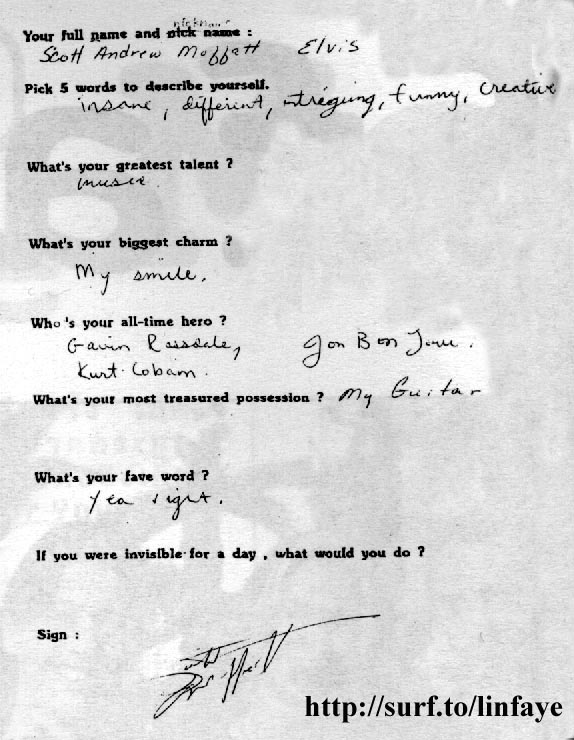 nickname
Your full name and nick name :
Scott Andrew Moffatt Elvis
Pick 5 words to describe yourself.
insane, different, intreguing, funny, creative
What's your greatest talent ?
music
What's your biggest charm ?
My smile.
Who's your all-time hero ?
Gavin Rossdale, Jon Bon Jovi.
Kurt Cobain.
What's your most treasured possession ? My Guitar
What's your fave word ?
Yea right.
If you were invisible for a day , what would you do ?
Sign :
http://surf.to/linfaye